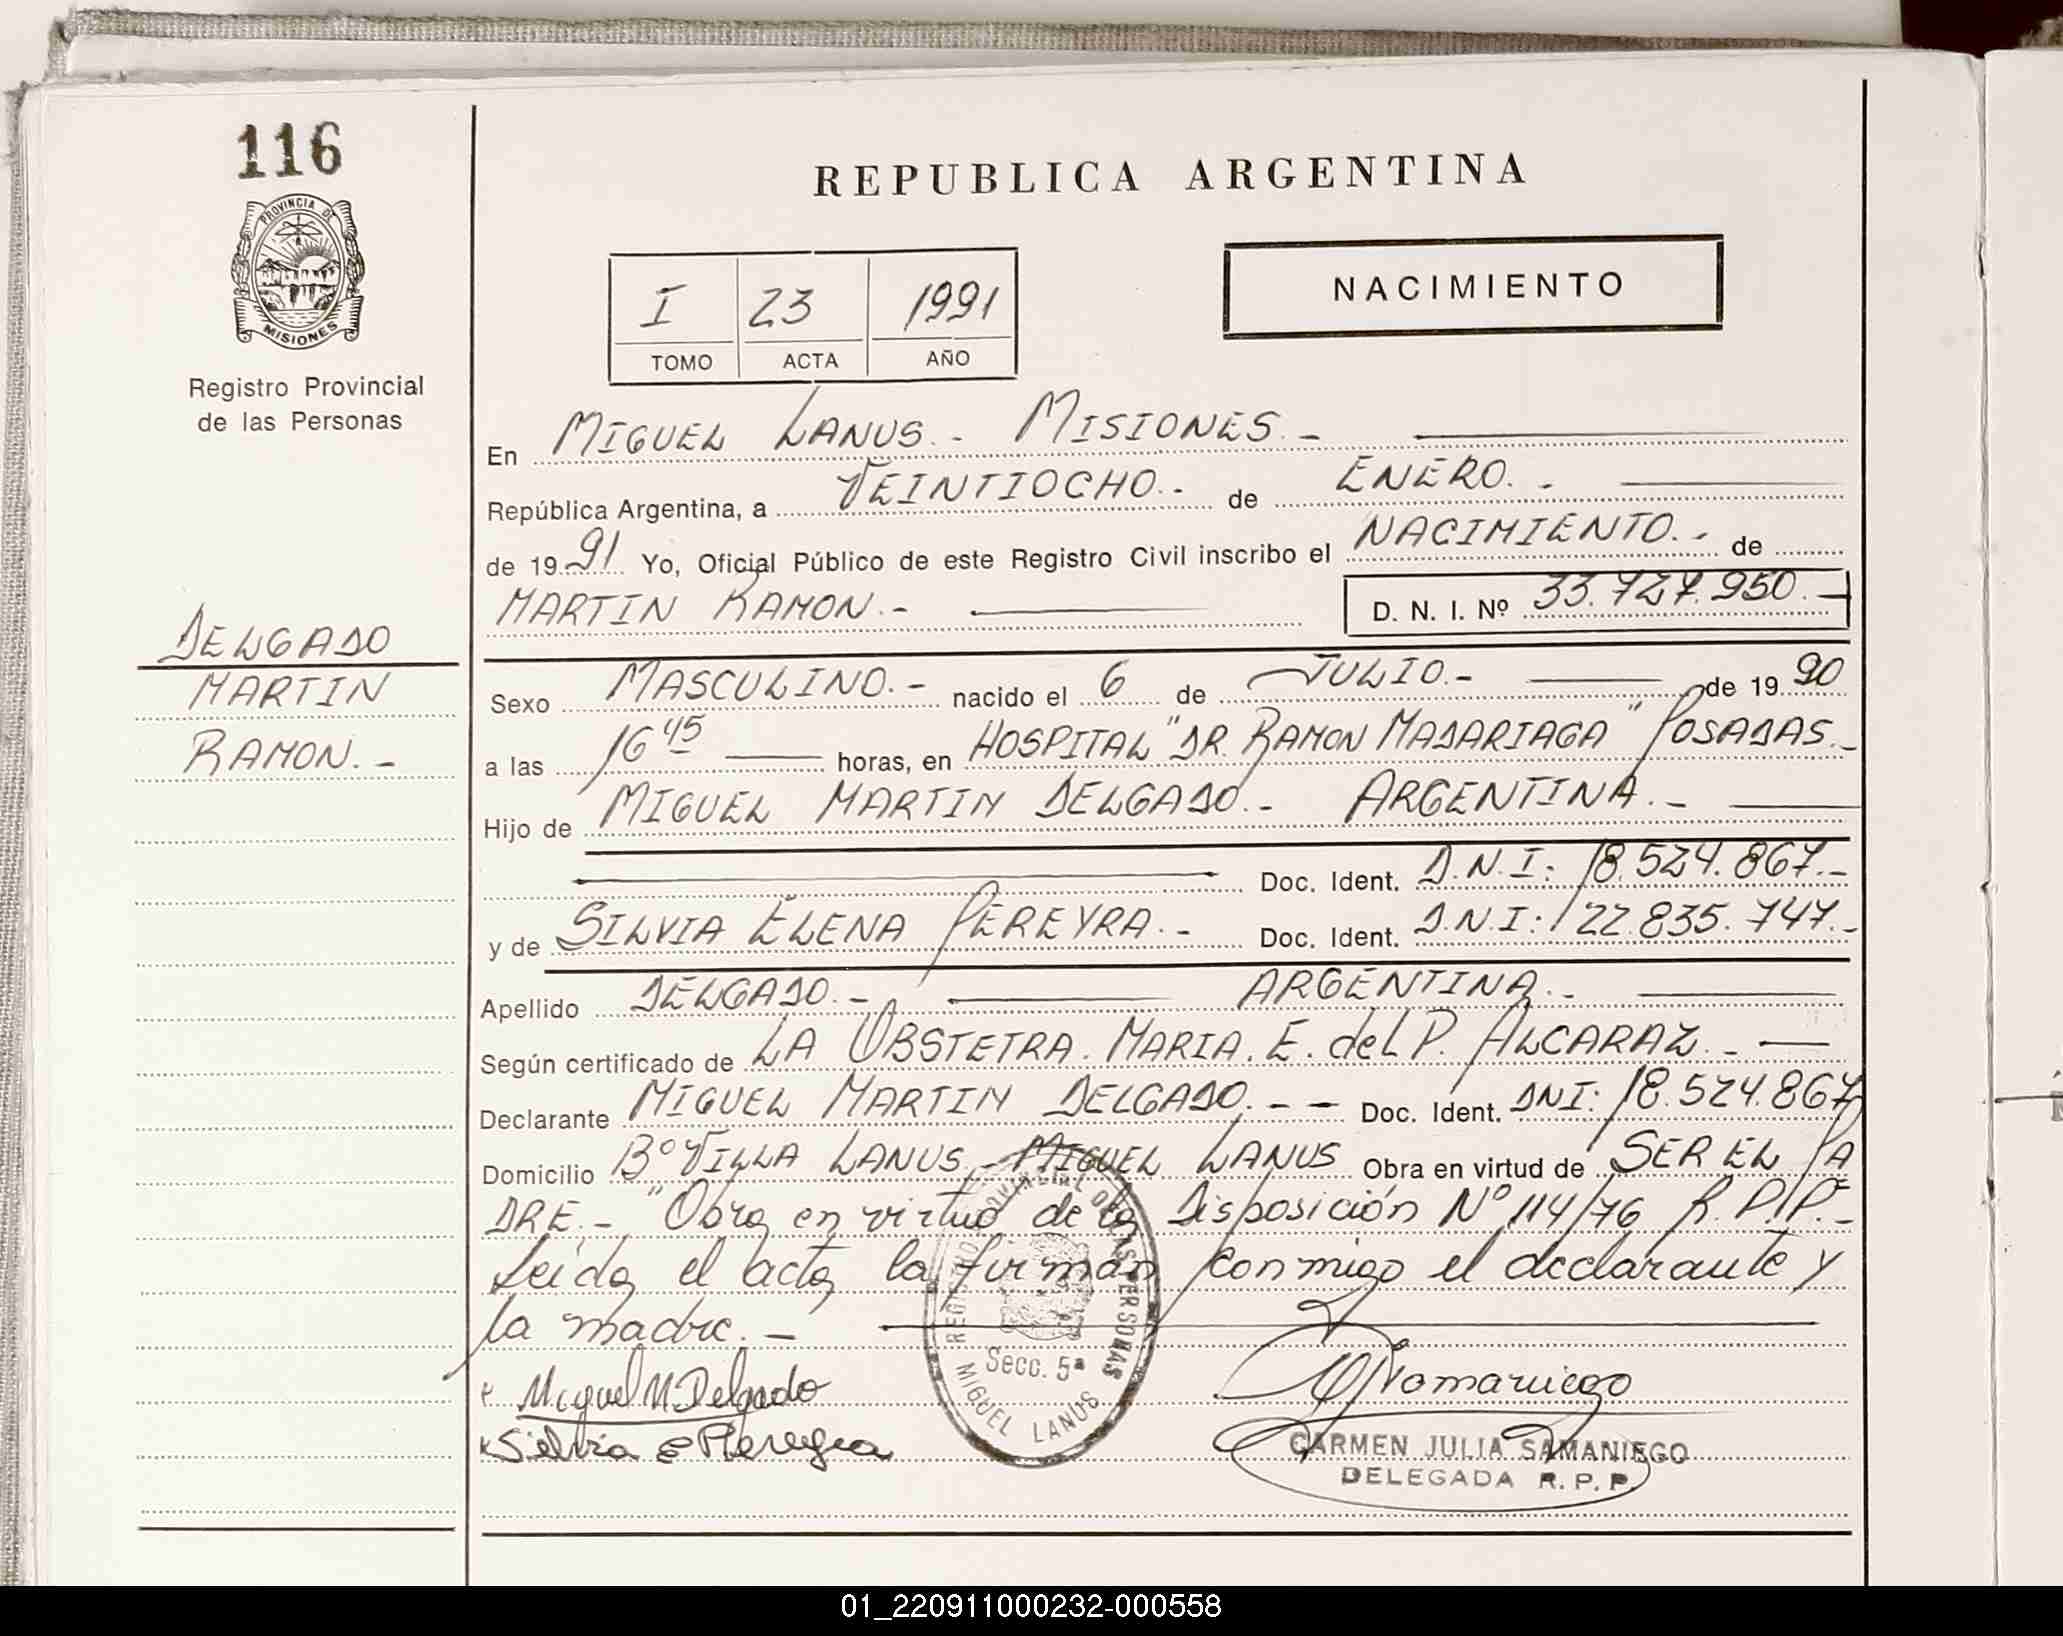 116
PROVINCIA DE
MISIONES
Registro Provincial
de las Personas
REPUBLICA ARGENTINA
I 23 1991
TOMO ACTA AÑO
NACIMIENTO
En MIGUEL LANUS.- MISIONES.-
República Argentina, a VEINTIOCHO.- de ENERO.-
de 1991 Yo, Oficial Público de este Registro Civil inscribo el NACIMIENTO.- de
MARTIN RAMON.- D. N. I. Nº 33.727.950.-
DELGADO
MARTIN
RAMON.-
Sexo MASCULINO.- nacido el 6 de JULIO.- de 1990
a las 16 45 horas, en HOSPITAL "DR. RAMON MADARIAGA" POSADAS.-
Hijo de MIGUEL MARTIN DELGADO.- ARGENTINA.-
Doc. Ident. D.N.I: 18.524.867.-
y de SILVIA ELENA PEREYRA.- Doc. Ident. D.N.I: 22.835.747.-
Apellido DELGADO.- ARGENTINA.-
Según certificado de LA OBSTETRA. MARIA. E. del P. ALCARAZ.-
Declarante MIGUEL MARTIN DELGADO.-- Doc. Ident. DNI: 18.524.867
Domicilio Bº VILLA LANUS.- MIGUEL LANUS Obra en virtud de SER EL PA
DRE.- "Obra en virtud de la Disposición Nº 114/76 R.P.P.-
Leida el acta la firman conmigo el declarante y
la madre.-
Miguel M Delgado
Silvia E Pereyra
REGISTRO PROVINCIAL DE LAS PERSONAS
Secc. 5ª
MIGUEL LANUS
CARMEN JULIA SAMANIEGO
DELEGADA R.P.P.
01_220911000232-000558